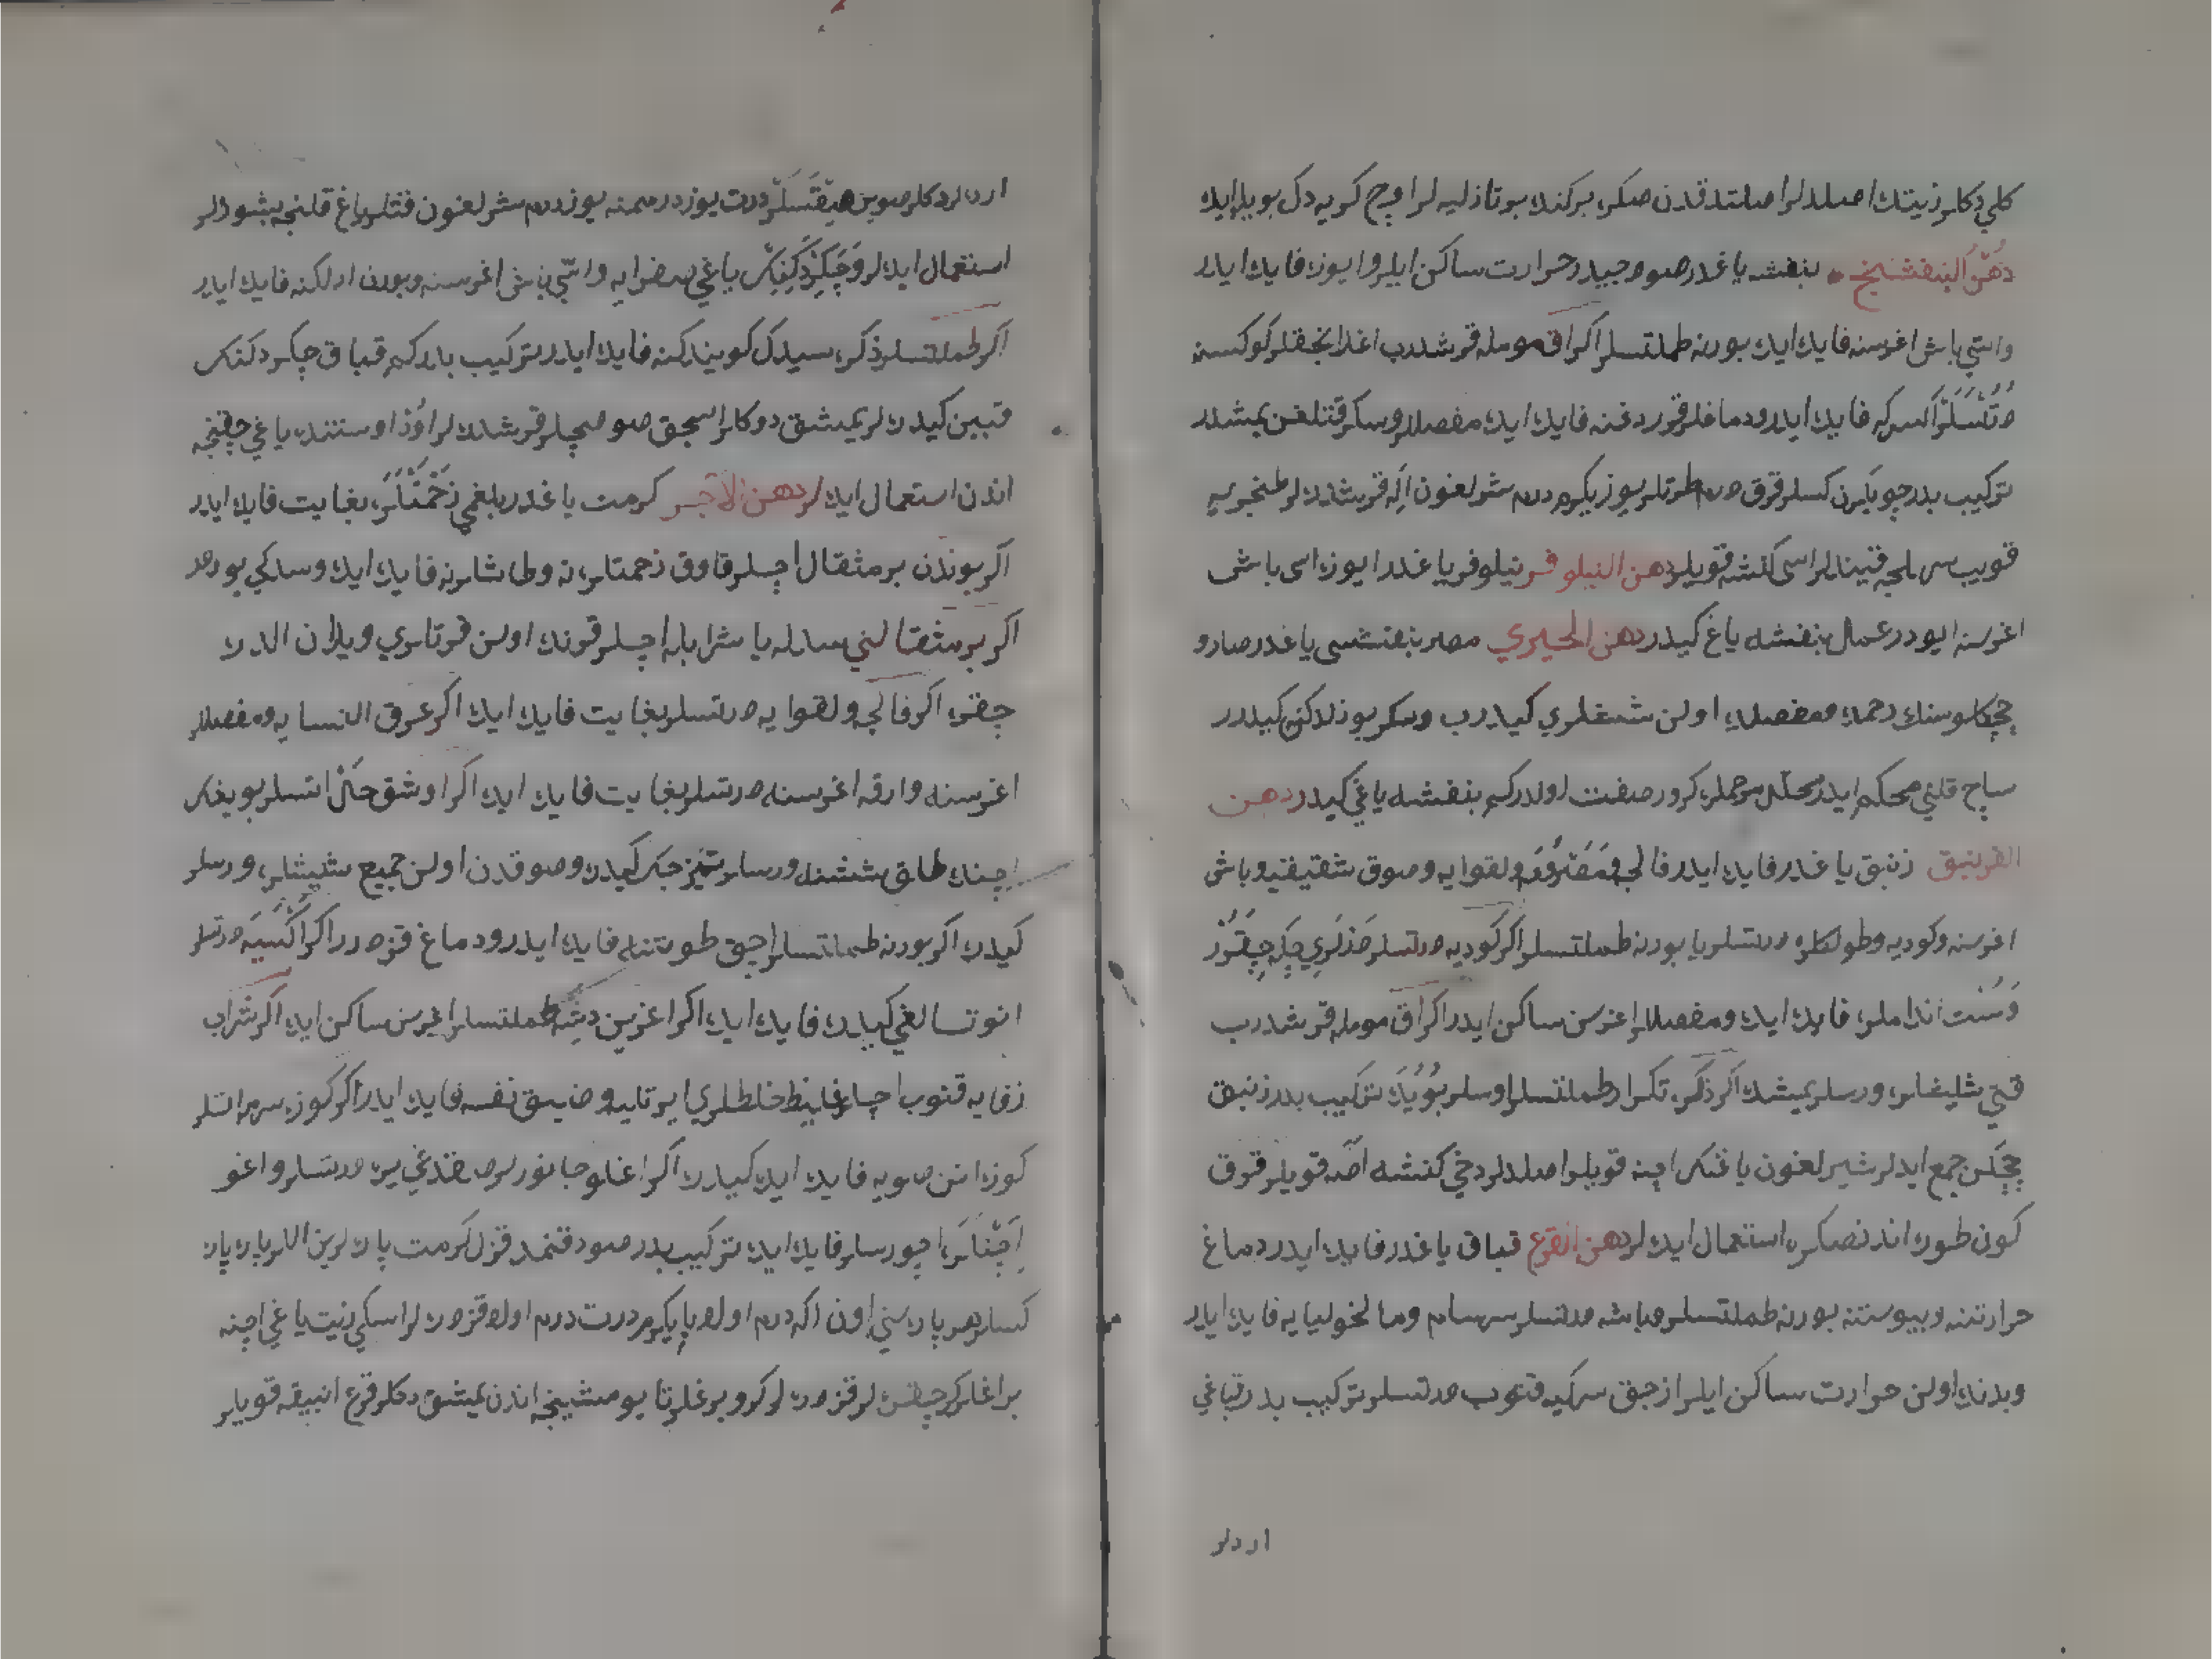 كلي دكلر زيتك اصلدلر اصلتدقدن صكره بركندە بوتازليه لر اوچ كريه دك بويله ايدە
دهن البنفشنج بنفشه ياغدر صوودجيدر حرارت ساكن ايلر و ايوزه فايدە ايدر
واسّي باش اغرسنه فايدە ايدە بورنه طملتسلر اكر اق مومله قرشدرب اغلانجقلر كوكسنه
دُرْتُسَلَرْ اكسركه فايدە ايدر ودماغلر قوردغنه فايدە ايدە مفصللر وسكر قتلغن يمشدر
تركيب بدر چوپلرن كسلر قرق درم طرتلر يوز يكرم درم شرلغون اله قرشدرلر طنجريه
قويب سهلجه قيندلر اسّي كنشه قويلر دهن النيلوفر نيلوفر ياغدر ايوزه اسّي باش
اغرسنه ايودر عمال بنفشه ياغ كيدر دهن الخيري مصر بنفشسي ياغدر صارو
چچكلوسنك رحمدە ومفصلدە اولن شغلري كيدرب وسكر بوزلدكنه كيدر
ساچ قلني محكم ايدر محلّل مرهملره كرور صفت اولدر كم بنفشه ياغي كيدر دهن
الزنبق زنبق ياغدر فايدە ايدر فالجه ومفروقه ولقوايه وصوق شقيقيه وباش
اغرسنه وكوديه وطولكره درتسلر يا بورنه طملتسلر اكر كوديه درتسلر خذلري چكه چقرر
وسست اندامله فايدە ايدە ومفصللر اغرسن ساكن ايدر اكر اق مومله قرشدرب
قتي شليغلره ورسلر يمشدە اكر ذكره تكرار طملتسلر اوسلر بويدك تركيب بدر زنبق
چچكلن جمع ايدلر شيرلغون ياغنك اچنه قويلر اصلدلر دخي كنشه اصه قويلر قرق
كون طوره اندنصكره استعمال ايدەلر دهن القرع قباق ياغدر فايدە ايدر دماغ
حرارتنه ويبوستنه بورنه طملتسلر وباشه درتسلر سرسام وماليخوليايه فايدە ايدر
وبدندە اولن حرارت ساكن ايلر ازجق سركيه قتوب درتسلر تركيب بدر قباغي
اردلر
اردلر دكلر صوين صيقسلر درت يوز درهمنه يوز درم شرلغون قتلر ياغ قلنجه بشورلر
استعمال ايدەلر وچكردكنك ياغي صفرايه واسّي باش اغرسنه وبورن اولكنه فايدە ايدر
اكر طملتسلر ذكره سيدك كويندكنه فايدە ايدر تركيب بدر كم قباق چكردكنك
قبين كيدرلر يمشق دوكلر اسجق صو صچلر قرشدرلر اوز اوستندە ياغي چقنجه
اندن استعمال ايدەلر دهن الآجر كرمت ياغدر بلغمي زحمتلره بغايت فايدە ايدر
اكر بوندن بر مثقال اچسلر قاوق زحمتلرينه وطاشلرنه فايدە ايدە وسدكي يوردر
اكر بر مثقالني سدله يا شرابله اچسلر قرندە اولن قرتلري ويلان الدرە
چقره اكر فالجه ولقوايه درتسلر بغايت فايدە ايدە اكر عرق النسايه ومفصللر
اغرسنه وارقه اغرسنه درتسلر بغايت فايدە ايدە اكر اوشق حلّ اتسلر بويغك
اچندە طلاق ششنه ورسلر تيزجك كيدرە وصوقدن اولن جميع شيشلره ورسلر
كيدرە اكر بورنه طملتسلر اچق طوتنه فايدە ايدر ودماغ قزدرر اكر اكسيه درتسلر
انوتسالغي كيدرە فايدە ايدە اكر اغزين دشه طملتسلر اغرسن ساكن ايدە اكر شراب
زفايه قتوب اچسلر غليظ خلطلري ايرتليه وضيق نفسه فايدە ايدر اكر كوزه سرمه اتسلر
كوزه انن صويه فايدە ايدە كيدرە اكر اغلو جانورلر صقدغي يره درتسلر واغو
اچنلره اچورسلر فايدە ايدە تركيب بدر صو دقنمدق قزل كرمت پارەلرين الالر پارە پارە
كسلر هر پارەسني اون اكه درم اوله يا يكرم درت درم اوله قزدرلر اسكي زيت ياغي اچنه
براغلر كر چقرلر قزدرلر كرو برغلر تا يومشينجه اندن يمشق دكلر قرع انبيقه قويلر